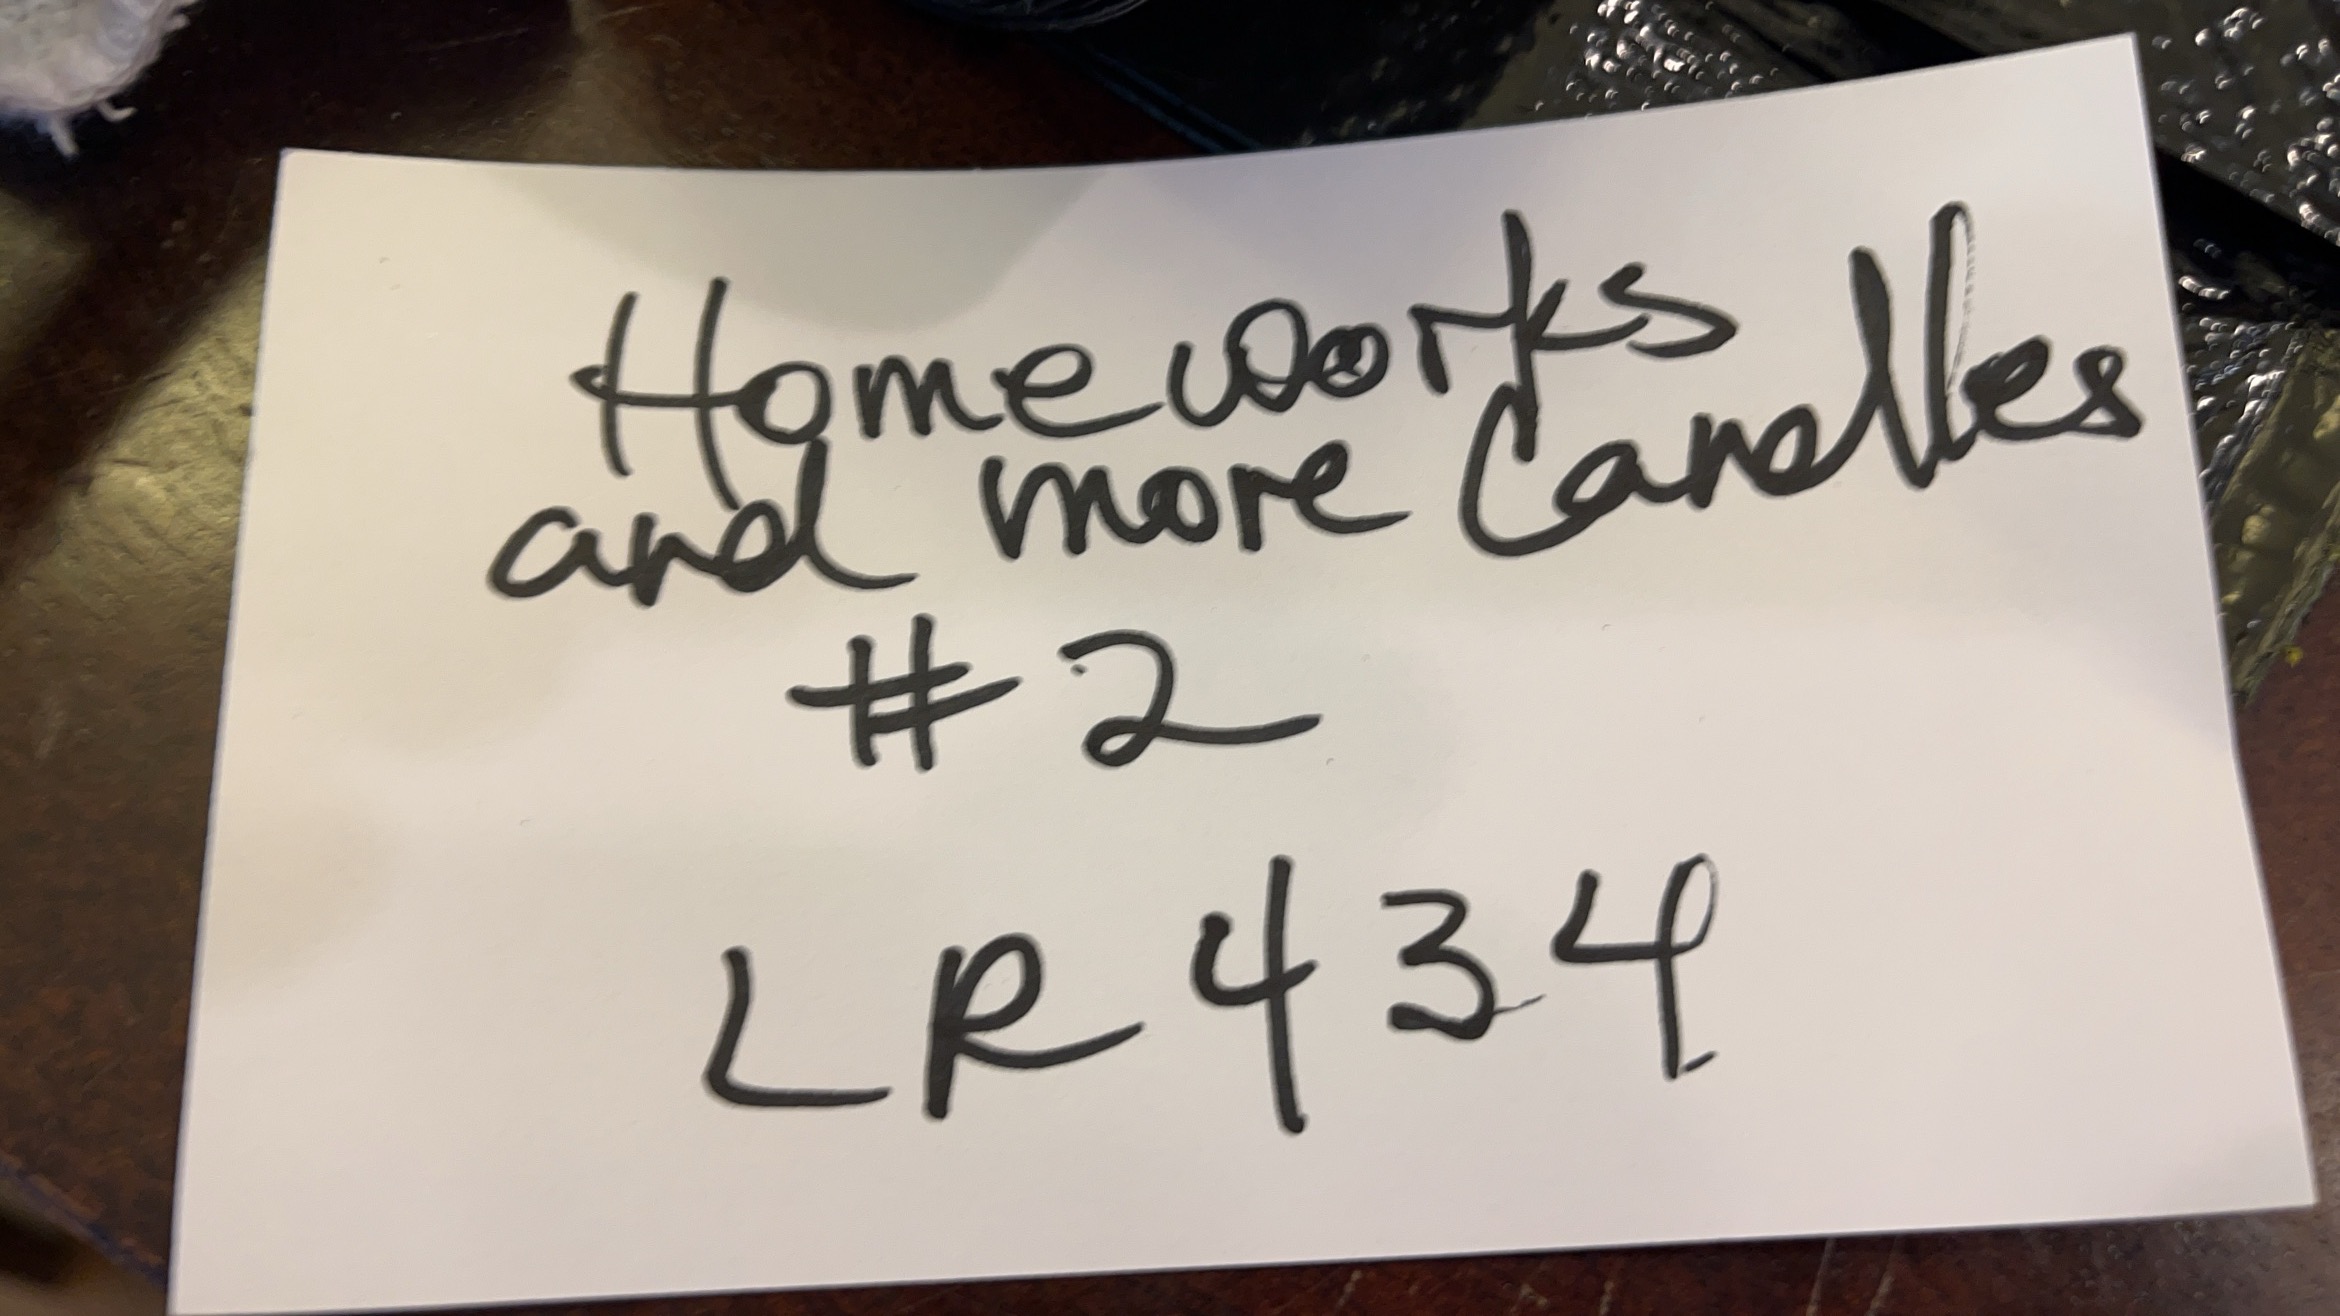 Homeworks
and more Candles
# 2
LR434